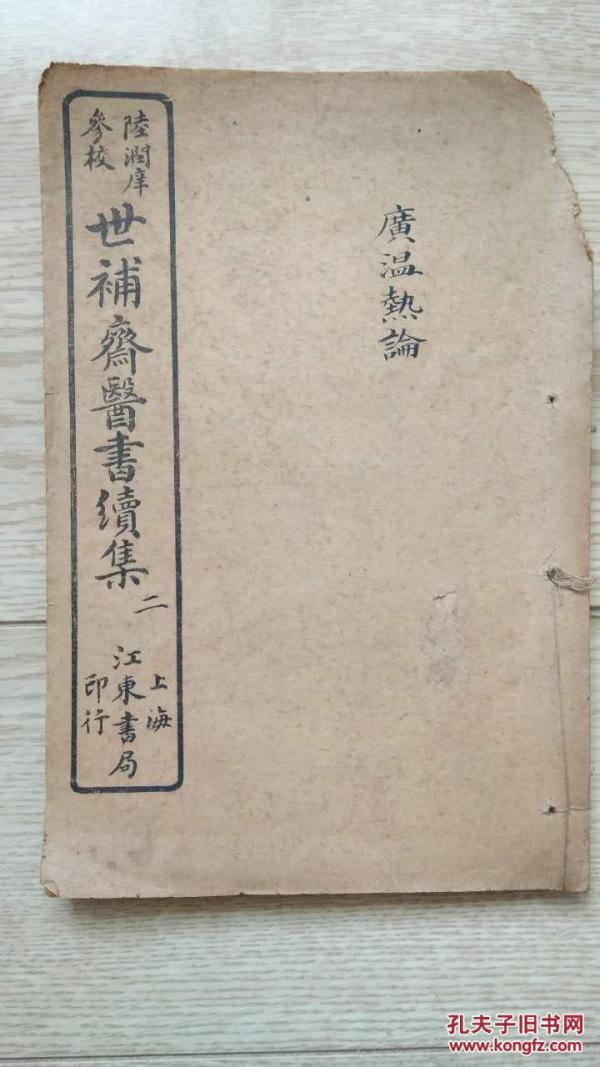 廣温熱論
陸潤庠
參校
世補齋醫書續集 二
上海
江東書局
印行
孔夫子旧书网
www.kongfz.com